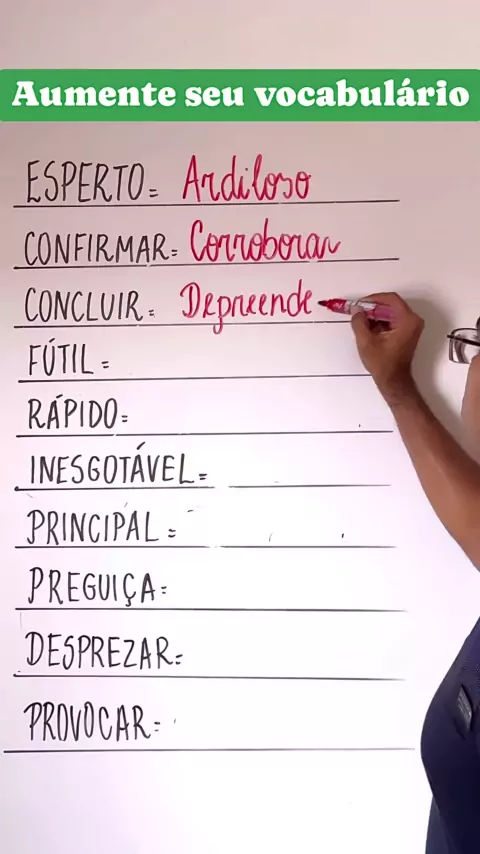 Aumente seu vocabulário
ESPERTO = Ardiloso
CONFIRMAR = Corroborar
CONCLUIR = Depreende
FÚTIL =
RÁPIDO =
INESGOTÁVEL =
PRINCIPAL =
PREGUIÇA =
DESPREZAR =
PROVOCAR =